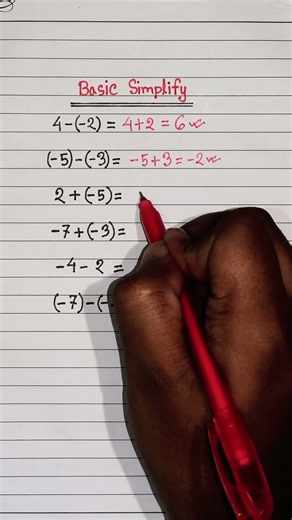 Basic Simplify
4-(-2) = 4+2 = 6
(-5)-(-3) = -5+3 = -2
2+(-5) =
-7+(-3) =
-4-2 =
(-7)-(-